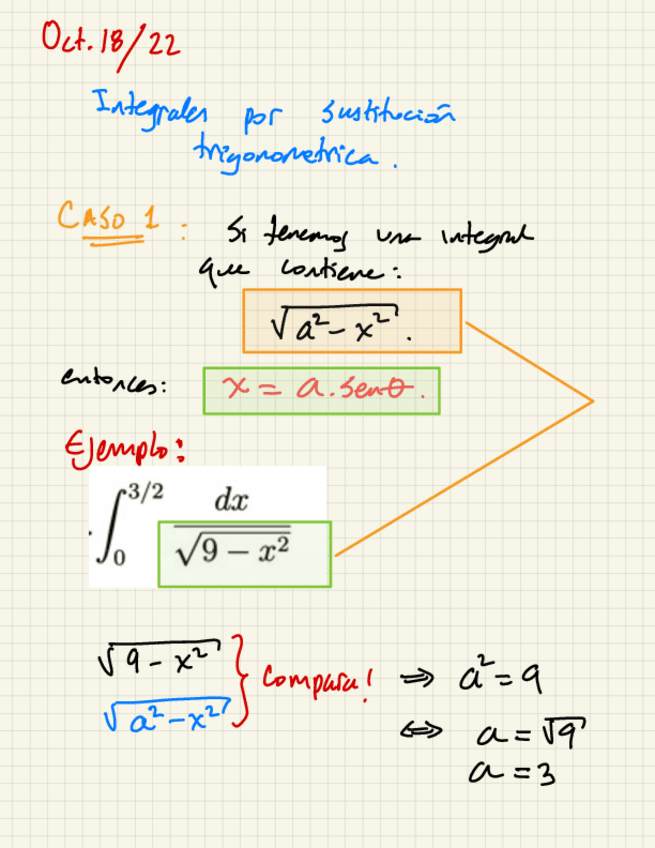 Oct. 18/22
Integrales por sustitución
trigonometrica.
CASO 1 : Si tenemos una integral
que contiene:
√(a² - x²).
entonces: x = a.senθ.
Ejemplo:
∫₀^{3/2} dx / √(9 − x²)
√(9 - x²) } Compara! ⇒ a² = 9
√(a² - x²) ⇔ a = √9
a = 3